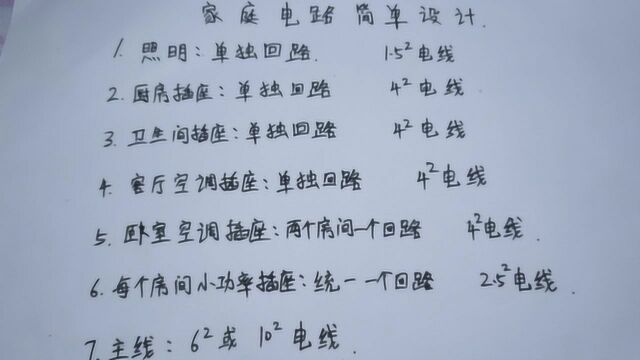 家庭电路简单设计.
1. 照明：单独回路. 1.5²电线
2. 厨房插座：单独回路 4²电线
3. 卫生间插座：单独回路 4²电线
4. 客厅空调插座：单独回路 4²电线
5. 卧室空调插座：两个房间一个回路 4²电线.
6. 每个房间小功率插座：统一一个回路 2.5²电线.
7. 主线：6²或10²电线.